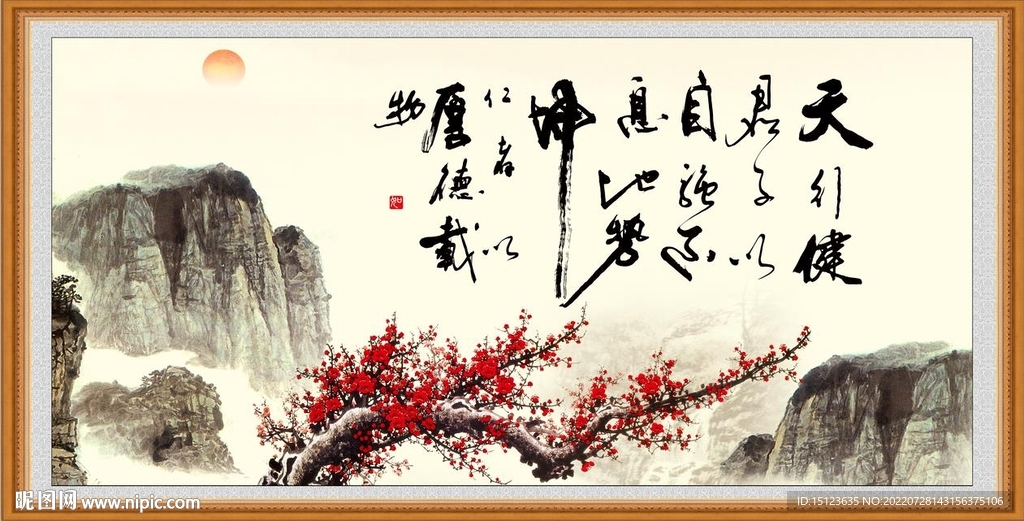 天行健
君子以
自強不
息地勢
坤
仁者以
厚德載
物
昵图网 www.nipic.com
ID:15123635 NO:20220728143156375106